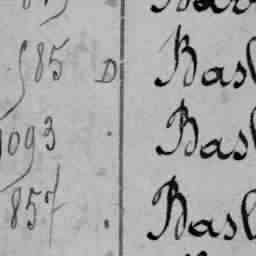 585 D Basl
1093 . Basl
857 . Basl